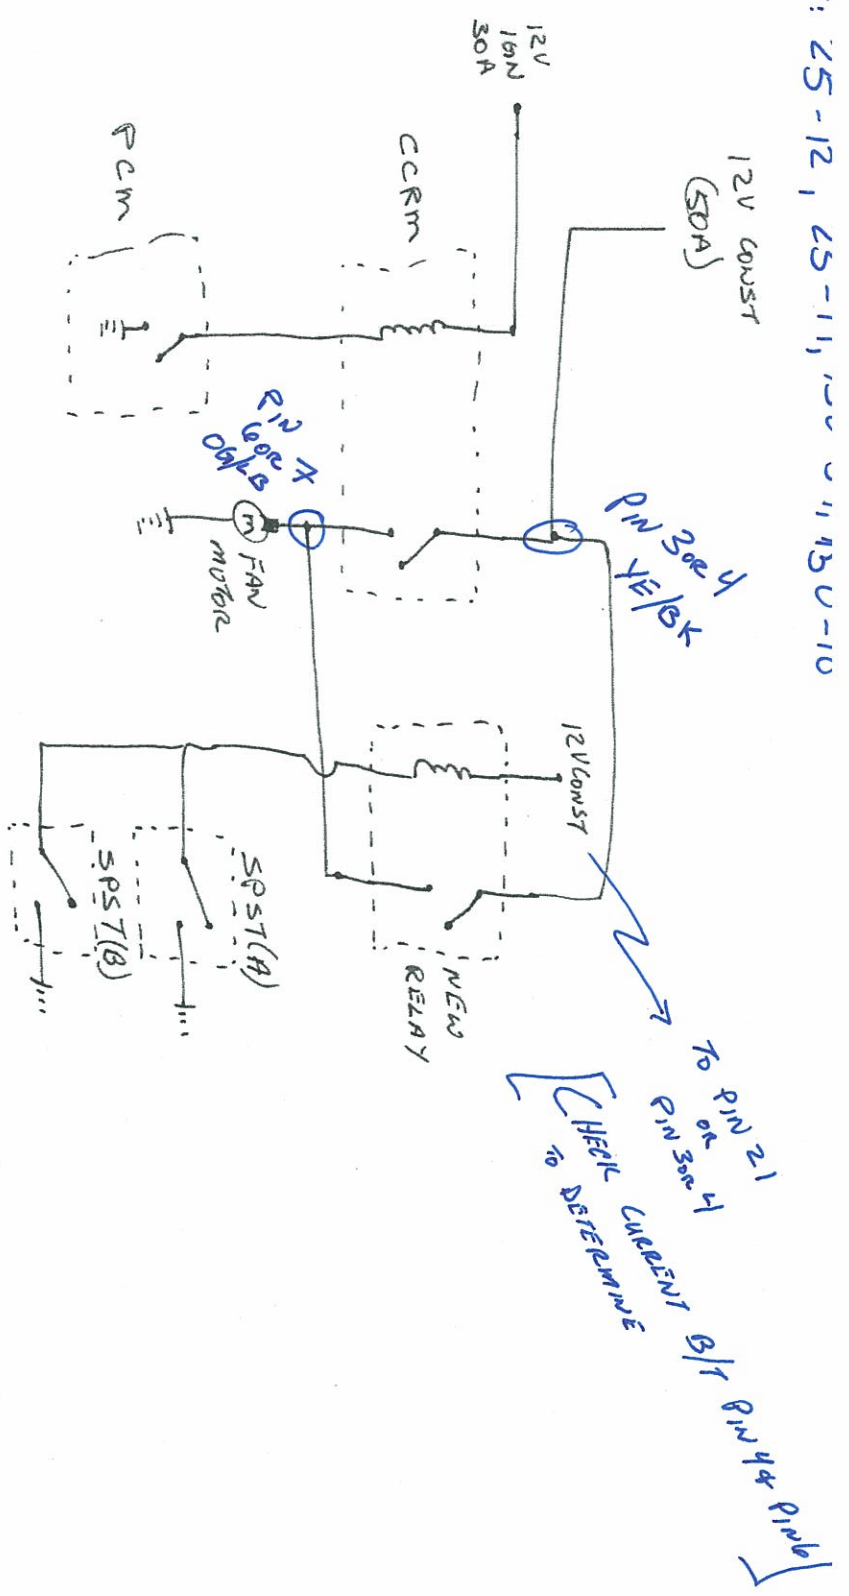 : 25-12, 25-11,
130-10
12V CONST
(50A)
12V
IGN
30A
CCRM
PCM
PIN 3 OR 4
YE/BK
PIN
6 OR 7
OG/LB
M
FAN
MOTOR
12V CONST
NEW
RELAY
SPST(A)
SPST(B)
TO PIN 21
OR
PIN 3 OR 4
[CHECK CURRENT B/T PIN 4 & PIN 6]
TO DETERMINE